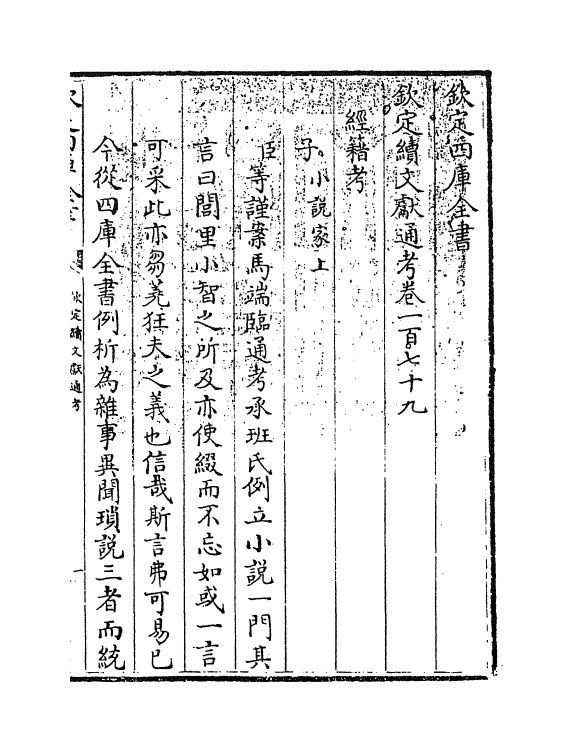 欽定四庫全書
欽定續文獻通考卷一百七十九
經籍考
子 小說家上
臣等謹案馬端臨通考承班氏例立小說一門其
言曰閭里小智之所及亦使綴而不忘如或一言
可采此亦芻蕘狂夫之義也信哉斯言弗可易已
今從四庫全書例析為雜事異聞瑣說三者而統
欽定續文獻通考
一